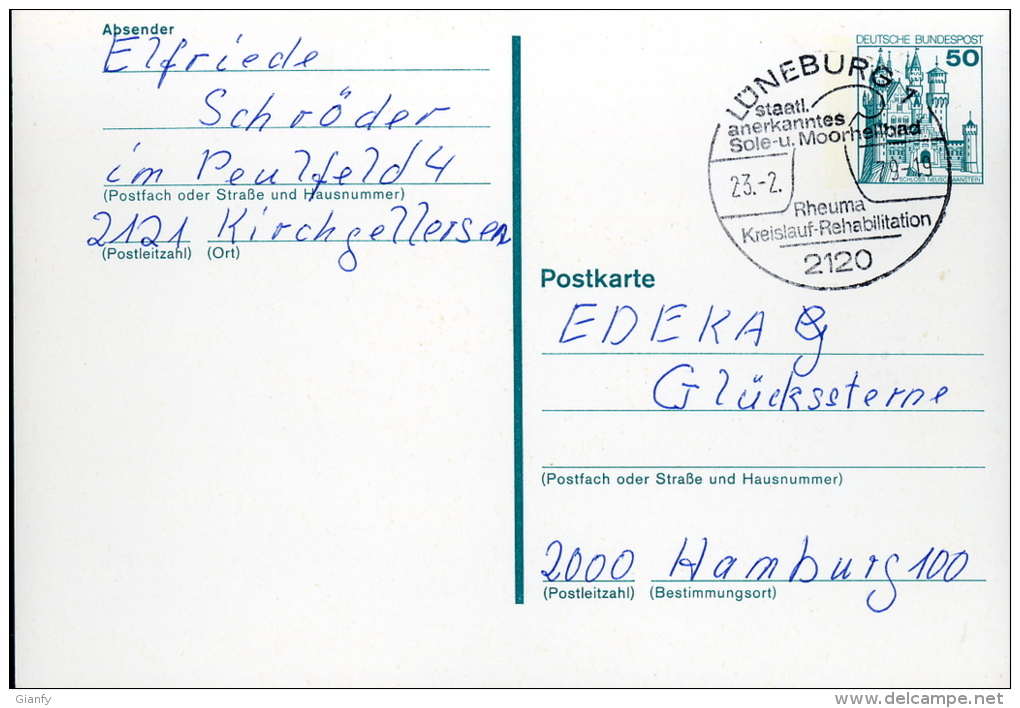 Absender
Elfriede
Schröder
im Peulfeld 4
(Postfach oder Straße und Hausnummer)
2121 Kirchgellersen
(Postleitzahl) (Ort)
DEUTSCHE BUNDESPOST
50
SCHLOSS NEUSCHWANSTEIN
LÜNEBURG 1
staatl.
anerkanntes
Sole-u. Moorheilbad
23.-2. 79-19
Rheuma
Kreislauf-Rehabilitation
2120
Postkarte
EDEKA
Glückssterne
(Postfach oder Straße und Hausnummer)
2000 Hamburg 100
(Postleitzahl) (Bestimmungsort)
Gianfy
www.delcampe.net